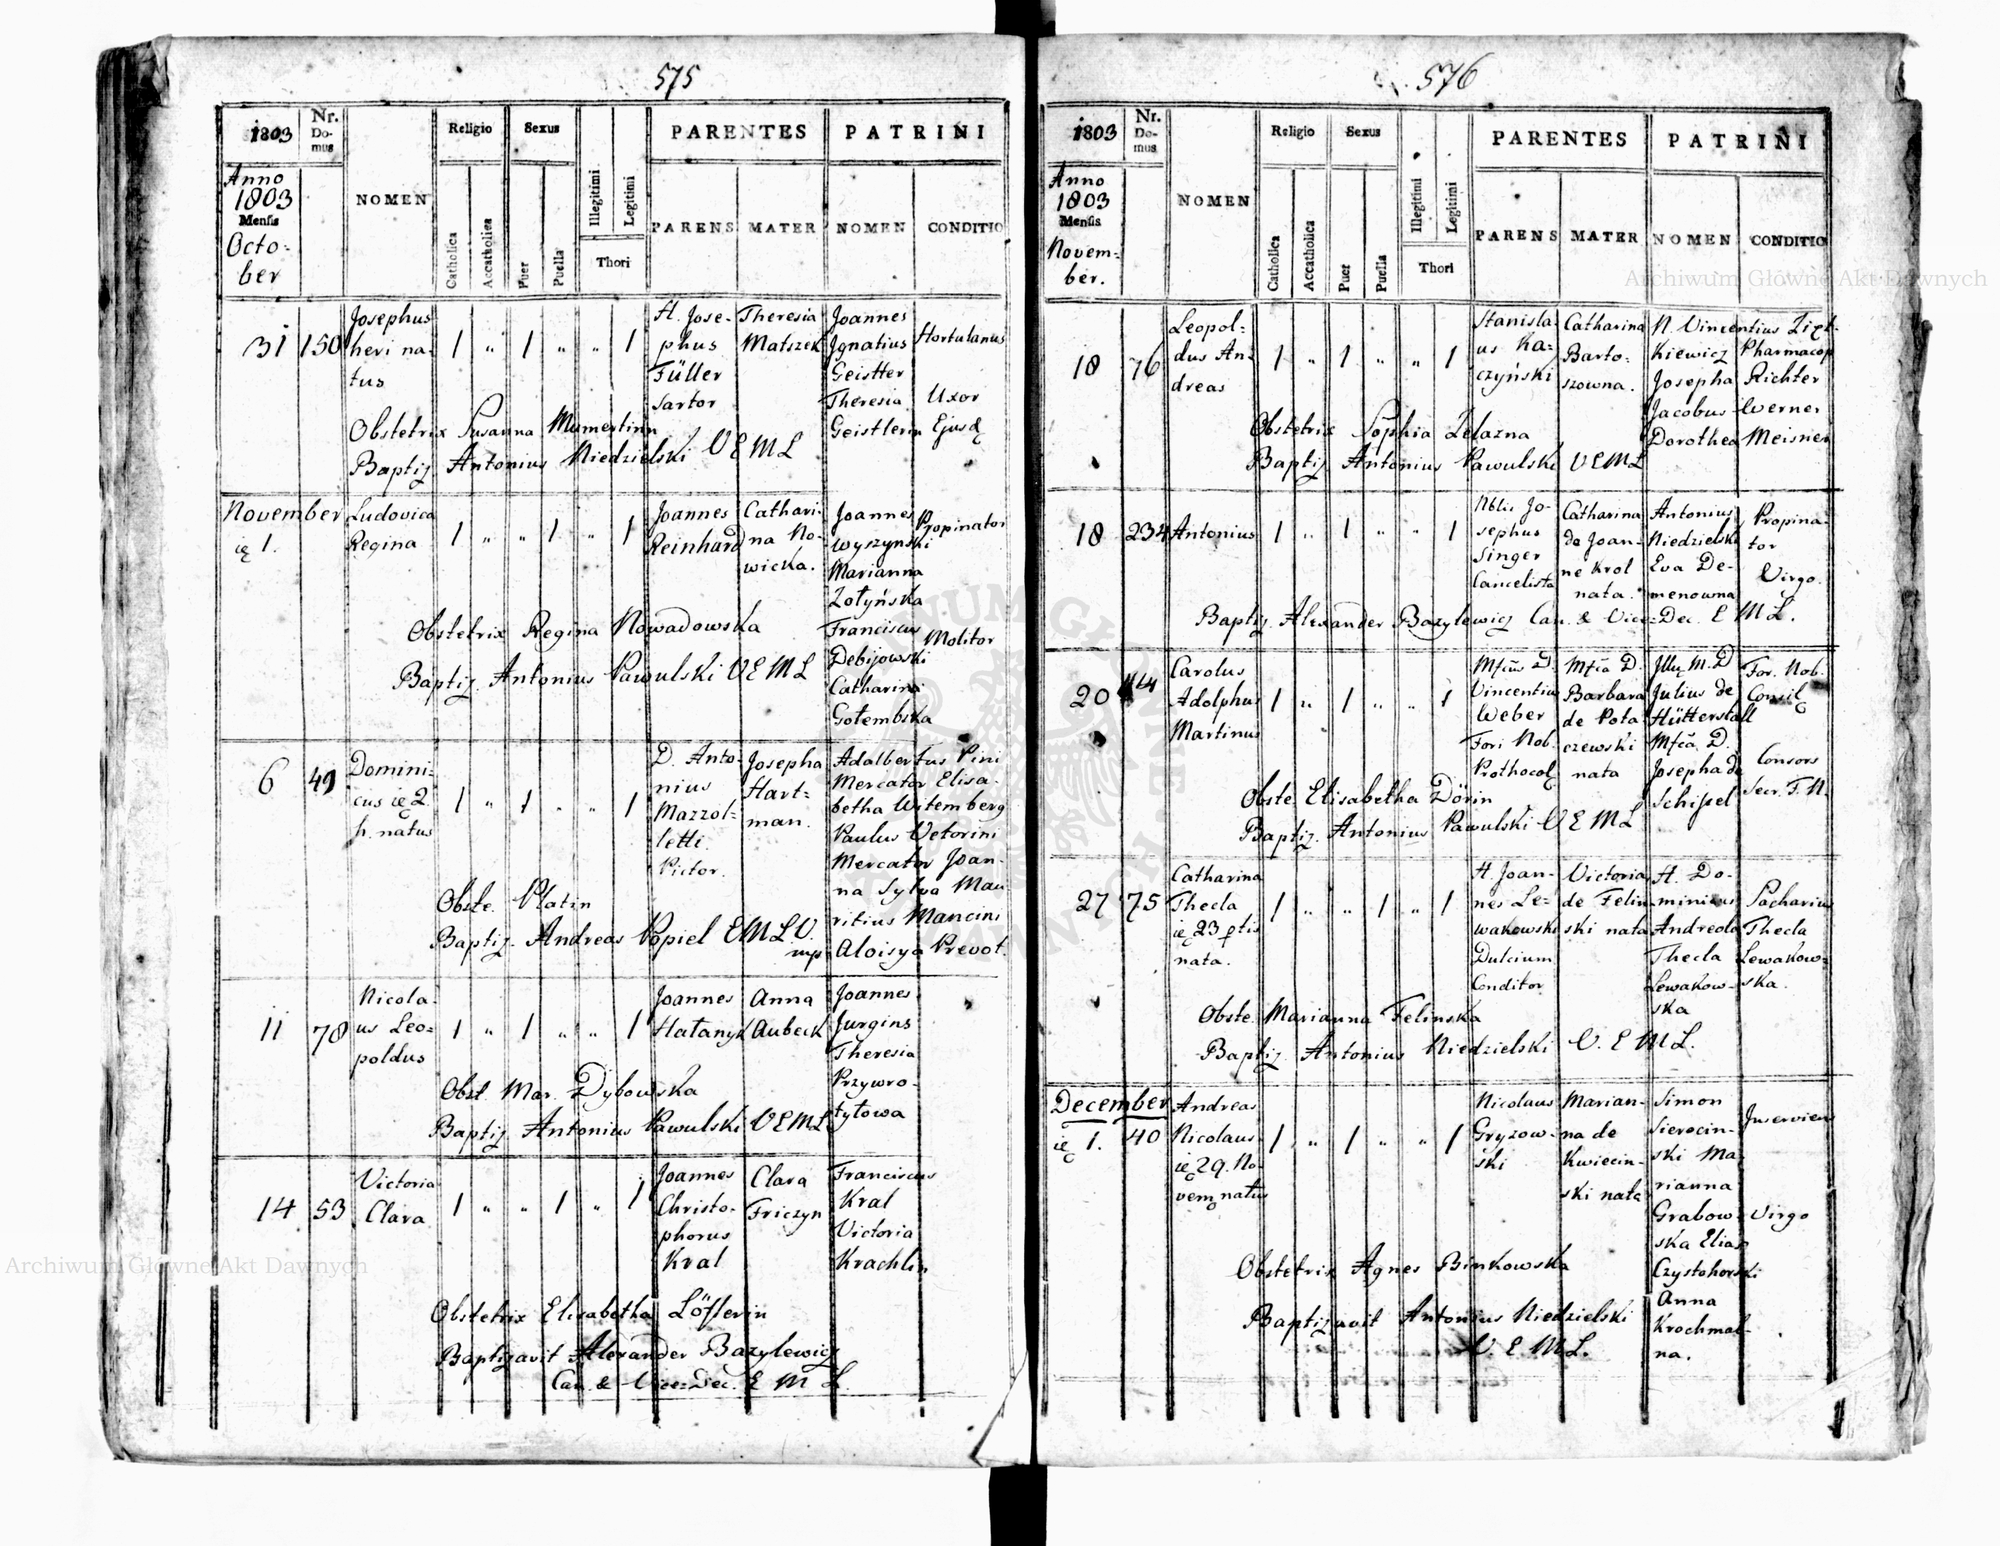 575
1803
Nr. Domus
NOMEN
Religio
Catholica
Accatholica
Sexus
Puer
Puella
Illegitimi
Legitimi
Thori
PARENTES
PARENS
MATER
PATRINI
NOMEN
CONDITIO
Anno
1803
Mensis
Octo-
ber
31
150
Josephus
heri na-
tus
1 " 1 " " 1
H. Jose-
phus
Füller
Sartor
Theresia
Matszek
Joannes
Ignatius
Geistler
Theresia
Geistlerin
Hortulanus
Uxor
Obstetrix Susanna
Baptiz Antonius Niedzielski V E M L
November
1.
Ludovica
Regina
1 " " 1 " 1
Joannes
Reinhard
Cathari-
na No-
wicka.
Joannes
Wyszynski
Marianna
Zołyńska
Franciscus
Debijowski
Catharina
Gołembska
Propinator
Molitor
Obstetrix Regina Nowadowska
Baptiz. Antonius Pawulski V E M L
6
49
Domini-
cus 2.
h. natus
1 " 1 " " 1
D. Anto-
nius
Mazzol-
letti.
Pictor.
Josepha
Hart-
man.
Adalbertus Pini
Mercator Elisa-
betha Witemberg
Paulus Vetorini
Mercator Joan-
na Sylva Mau-
ritius Mancini
Aloisya Prevot.
Obste. Platin
Baptiz. Andreas Popiel E M L V.
mp
11
78
Nicola-
us Leo-
poldus
1 " 1 " " 1
Joannes
Hatanyk
Anna
Aubeck
Joannes
Jurgins
Theresia
Przywro-
tyłowa
Obst. Mar. Dybowska
Baptiz Antonius Pawulski V E M L
14
53
Victoria
Clara
1 " " 1 " 1
Joannes
Christo-
phorus
Kral
Clara
Friczyn
Franciscus
Kral
Victoria
Krachlin
Obstetrix Elisabetha Löflerin
Baptizavit Alexander Bazylewicz
Can. & Vice-Dec. E M L.
576
1803
Nr. Domus
NOMEN
Religio
Catholica
Accatholica
Sexus
Puer
Puella
Illegitimi
Legitimi
Thori
PARENTES
PARENS
MATER
PATRINI
NOMEN
CONDITIO
Anno
1803
Mensis
Novem-
ber.
18
76
Leopol-
dus An-
dreas
1 " 1 " " 1
Stanisla-
us Ka-
czyński
Catharina
Barto-
szowna.
N. Vincentius Zięt-
kiewicz Pharmacop
Josepha Richter
Jacobus Werner
Dorothea Meisner
Obstetrix Sophia Zelazna
Baptiz Antonius Pawulski V E M L
18
234
Antonius
1 " 1 " " 1
Nblis Jo-
sephus
Singer
Cancelista
Catharina
de Joan-
ne Krol
nata.
Antonius
Niedzielski
Eva De-
menowna
Propina-
tor
Virgo.
Baptiz. Alexander Bazylewicz Can. & Vice-Dec. E M L.
20
Carolus
Adolphus
Martinus
1 " 1 " " 1
Vincentius
Weber
Fori Nob.
D.
Barbara
de Pota-
czewski
nata
Julius de
Hütterstall
D.
Josepha de
Schipel
For. Nob.
Consil
Consors
Secr. F. N.
Obste. Elisabetha Dörin
Baptiz. Antonius Pawulski V E M L
27
75
Catharina
Thecla
23
nata.
1 " " 1 " 1
H. Joan-
nes Le-
wakowski
Dulcium
Conditor
Victoria
de Felin-
ski nata
H. Do-
minicus
Andreola
Thecla
Lewakow-
ska
Thecla
Lewakow-
ska.
Obste. Marianna Felinska
Baptiz Antonius Niedzielski V. E M L.
December
1.
40
Andreas
Nicolaus
29. No-
vem natus
1 " 1 " " 1
Nicolaus
Gryzow-
ski
Marian-
na de
Kwiecin-
ski nata
Simon
Sierocin-
ski Ma-
rianna
Grabow-
ska Elias
Czystohorski
Anna
Krochmal-
na.
Inserviens
Virgo
Obstetrix Agnes Binkowska
Baptizavit Antonius Niedzielski
V. E M L.
Archiwum Główne Akt Dawnych
Archiwum Główne Akt Dawnych